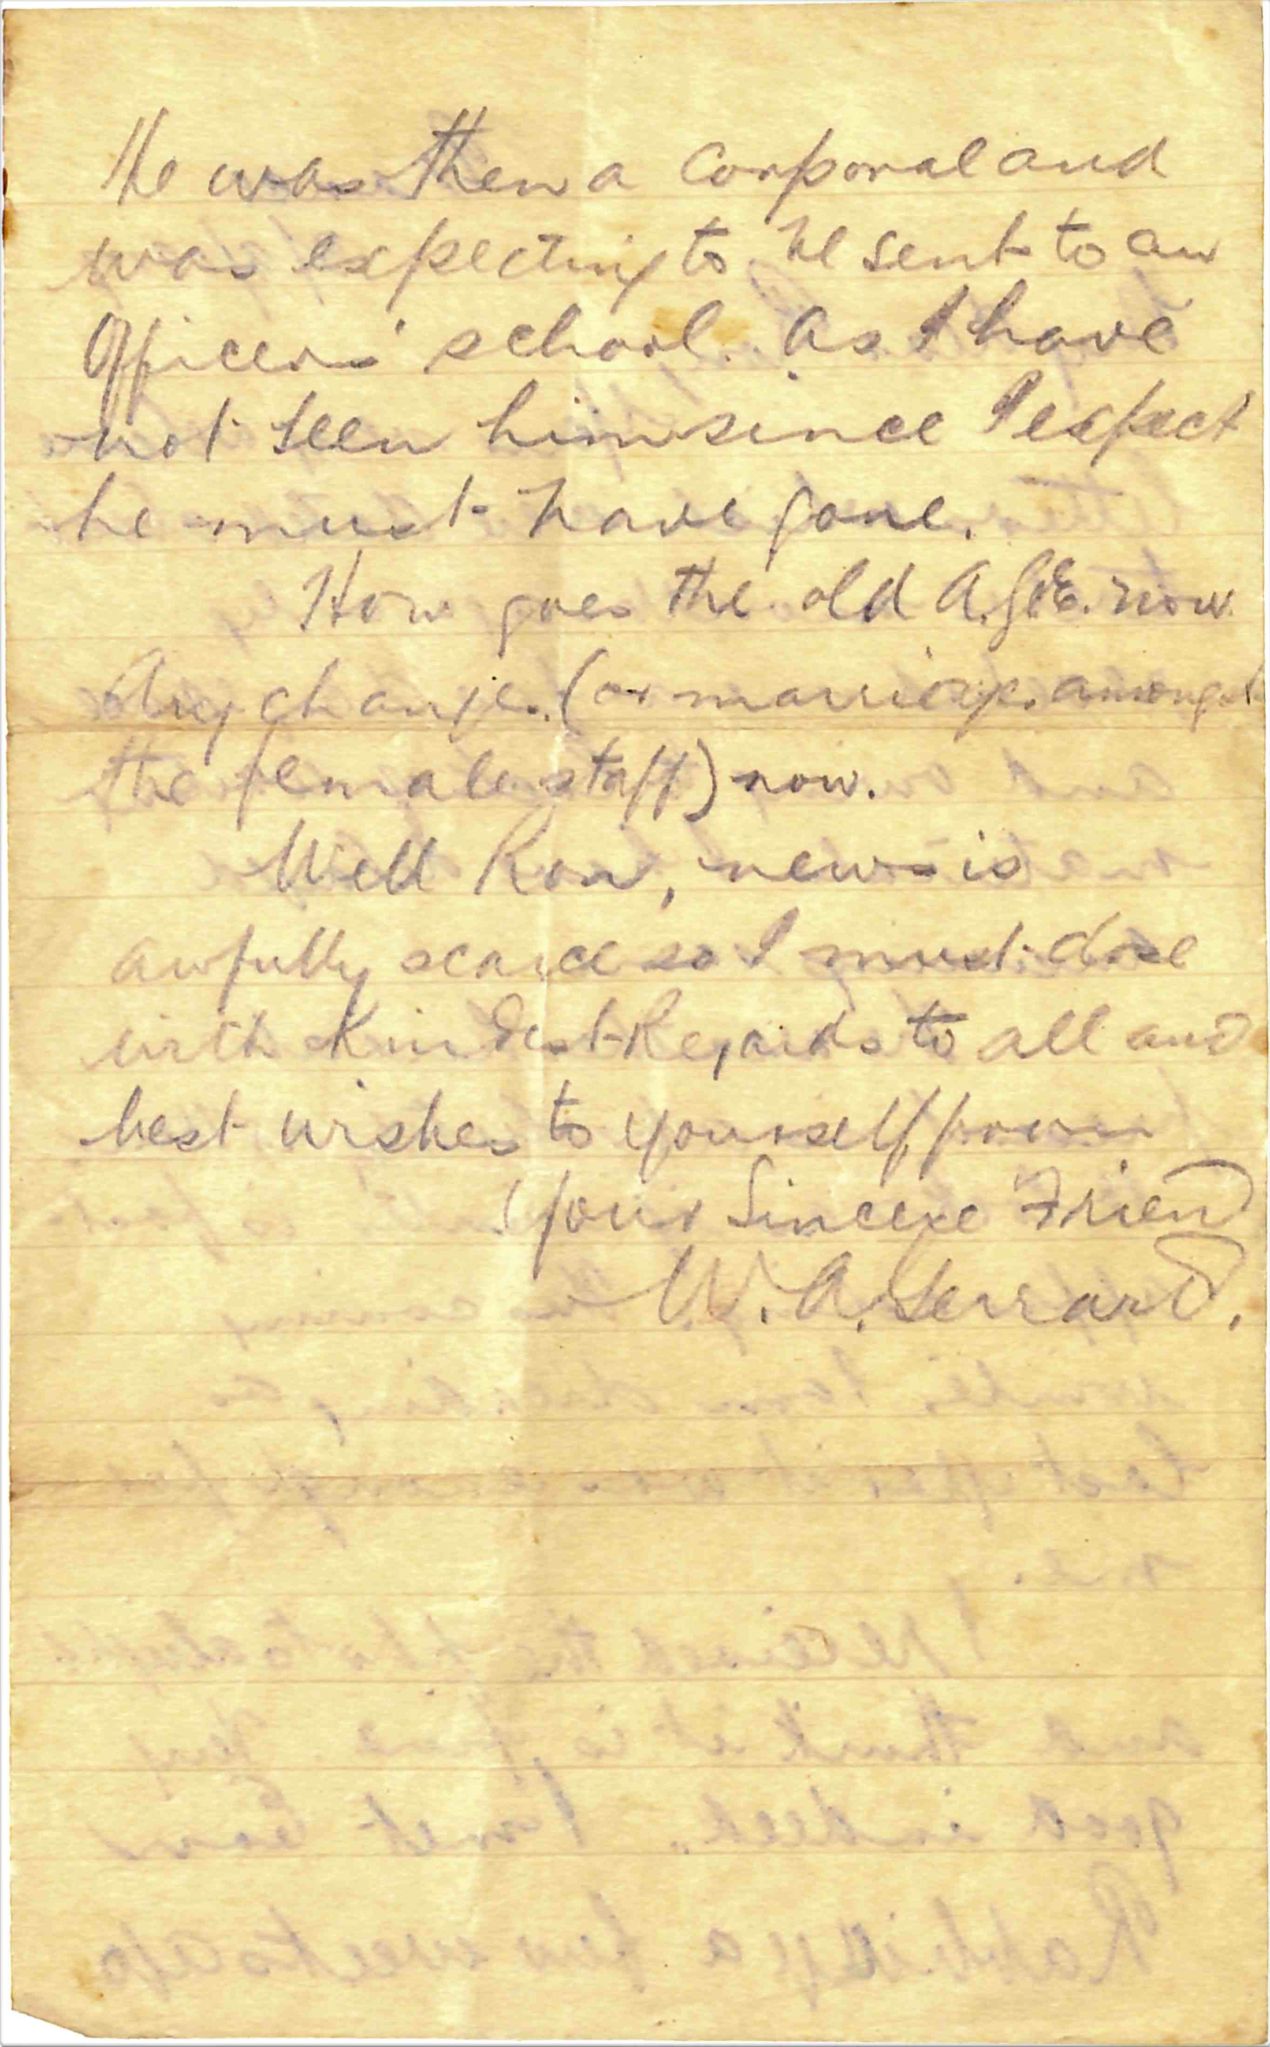 He was then a corporal and
was expecting to be sent to an
Officers' school. As I have
not seen him since I expect
he must have gone.
How goes the old A.G.E. now.
Any change. (or marriage. amongst
the female staff) now.
Well Ron, news is
awfully scarce so I must close
with Kindest Regards to all and
best wishes to yourself from
Your Sincere Friend
W. A. Gerrard.